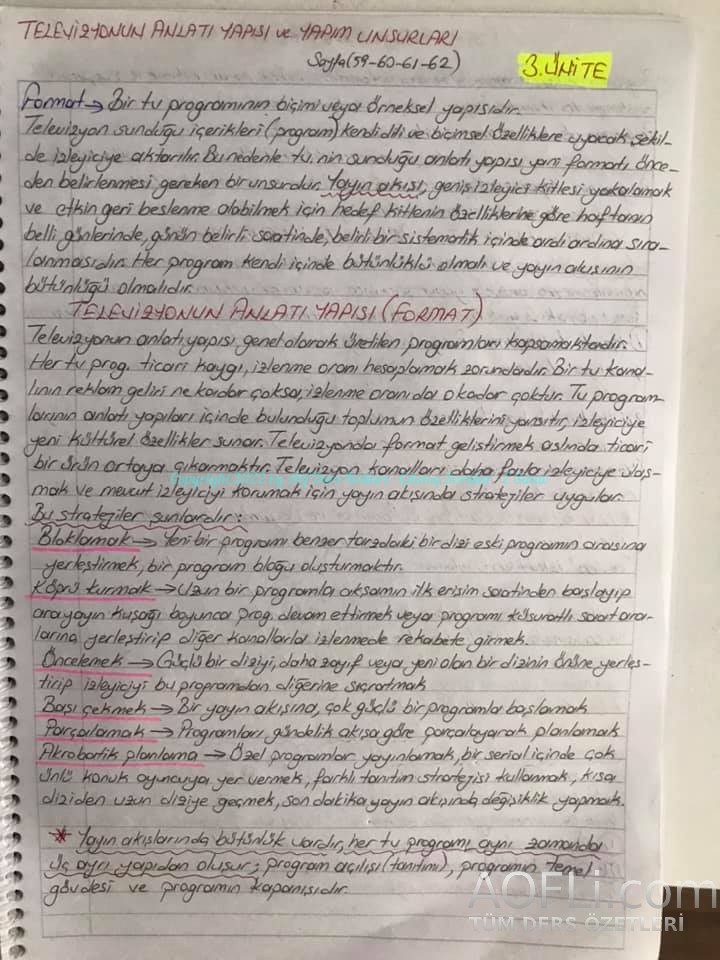 TELEVİZYONUN ANLATI YAPISI ve YAPIM UNSURLARI
Sayfa (59-60-61-62)
3. ÜNİTE
Format → Bir tv programının biçimi veya örneksel yapısıdır.
Televizyon sunduğu içerikleri (program) kendi dili ve biçimsel özelliklere uyacak şekil-
de izleyiciye aktarılır. Bu nedenle tv.nin sunduğu anlatı yapısı yani formatı önce-
den belirlenmesi gereken bir unsurdur. Yayın akışı, geniş izleyici kitlesi yakalamak
ve etkin geri beslenme alabilmek için hedef kitlenin özelliklerine göre haftanın
belli günlerinde, günün belirli saatinde, belirli bir sistematik içinde ardı ardına sıra-
lanmasıdır. Her program kendi içinde bütünlüklü olmalı ve yayın akışının
bütünlüğü olmalıdır.
TELEVİZYONUN ANLATI YAPISI (FORMAT)
Televizyonun anlatı yapısı genel olarak üretilen programları kapsamaktadır.
Her tv prog. ticari kaygı, izlenme oranı hesaplamak zorundadır. Bir tv kana-
lının reklam geliri ne kadar çoksa, izlenme oranı da o kadar çoktur. Tv program-
larının anlatı yapıları içinde bulunduğu toplumun özelliklerini yansıtır, izleyiciye
yeni kültürel özellikler sunar. Televizyonda format geliştirmek aslında ticari
bir ürün ortaya çıkarmaktır. Televizyon kanalları daha fazla izleyiciye ulaş-
mak ve mevcut izleyiciyi korumak için yayın akışında stratejiler uygular.
Bu stratejiler şunlardır:
Bloklamak → Yeni bir programı benzer tarzdaki bir dizi eski programın arasına
yerleştirmek, bir program bloğu oluşturmaktır.
Köprü kurmak → Uzun bir programla akşamın ilk erişim saatinden başlayıp
ara yayın kuşağı boyunca prog. devam ettirmek veya programı küsuratlı saat ara-
larına yerleştirip diğer kanallarla izlenmede rekabete girmek.
Öncelemek → Güçlü bir diziyi, daha zayıf veya yeni olan bir dizinin önüne yerleş-
tirip izleyiciyi bu programdan diğerine sıçratmak
Başı çekmek → Bir yayın akışına, çok güçlü bir programla başlamak
Parçalamak → Programları gündelik akışa göre parçalayarak planlamak
Akrobatik planlama → Özel programlar yayınlamak, bir serial içinde çok
ünlü konuk oyuncuya yer vermek, farklı tanıtım stratejisi kullanmak, kısa
diziden uzun diziye geçmek, son dakika yayın akışında değişiklik yapmak.
* Yayın akışlarında bütünlük vardır, her tv programı aynı zamanda
üç ayrı yapıdan oluşur; program açılışı (tanıtımı), programın temel
gövdesi ve programın kapanışıdır.
AÖFLi.com
TÜM DERS ÖZETLERİ